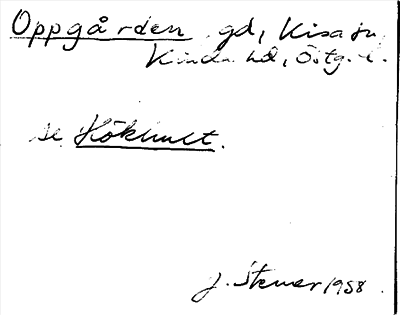 Oppgården gd, Kisa sn,
Kinda hd, Östg. l.
se Hökhult.
J. Stener 1958.